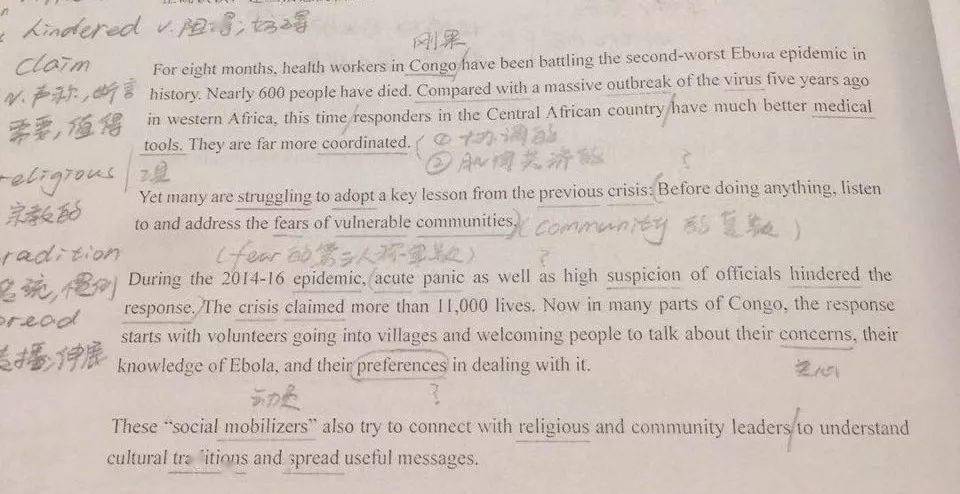 hindered v.阻碍;妨碍
刚果
claim
For eight months, health workers in Congo have been battling the second-worst Ebola epidemic in
v.声称,断言
history. Nearly 600 people have died. Compared with a massive outbreak of the virus five years ago
需要,值得
in western Africa, this time responders in the Central African country have much better medical
tools. They are far more coordinated. ① 协调的
②
religious
?
Yet many are struggling to adopt a key lesson from the previous crisis: Before doing anything, listen
宗教的
to and address the fears of vulnerable communities. (community 的复数)
radition
(fear的第三人称单数)
?
During the 2014-16 epidemic, acute panic as well as high suspicion of officials hindered the
传统,惯例
response. The crisis claimed more than 11,000 lives. Now in many parts of Congo, the response
pread
starts with volunteers going into villages and welcoming people to talk about their concerns, their
传播,伸展
knowledge of Ebola, and their preferences in dealing with it.
关心
动员
?
These “social mobilizers” also try to connect with religious and community leaders to understand
cultural tra itions and spread useful messages.